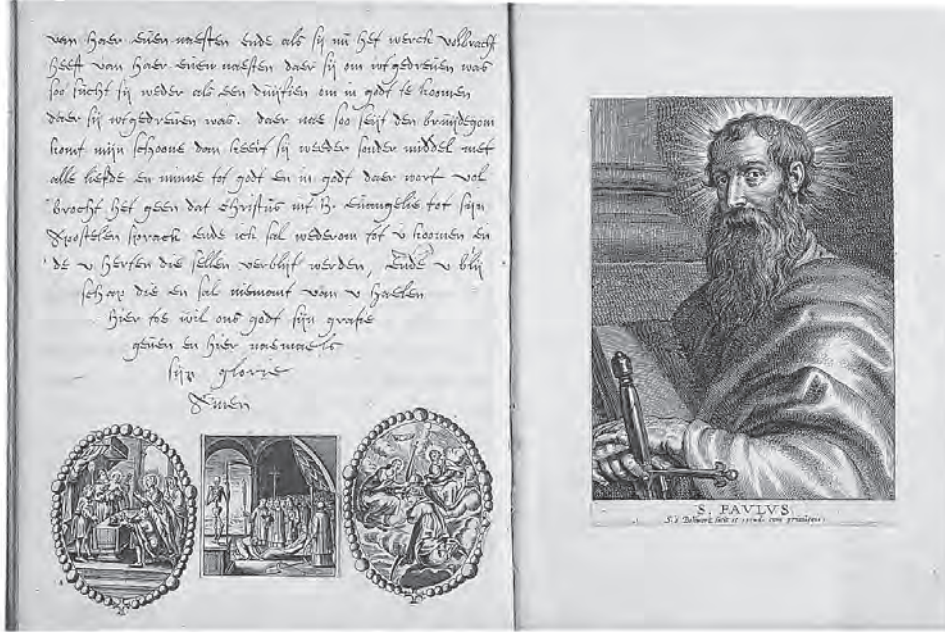 van haer euen naesten ende als sij nu het werck volbracht
heeft van haer euen naesten daer sij om wtgedreuen was
soo sucht sij weder als een duijfien om in godt te koomen
daer sij wtgedreuen was. daer nae soo seijt den bruijdegom
komt mijn schoone dan keert sij weeder sonder middel met
alle liefde en minne tot godt en in godt daer wort vol
brocht het geen dat Christus int H. euangelie tot sijn
Apostelen sprack ende ick sal wederom tot v koomen en
de v herten die sellen verblijt werden, Ende v blij
schap die en sal niemant van v haelen
Hier toe wil ons godt sijn gratie
geuen en hier naemaels
sijn glorie
Amen
S. PAVLVS.
S. à Bolswert fecit et excud. cum priuilegio.